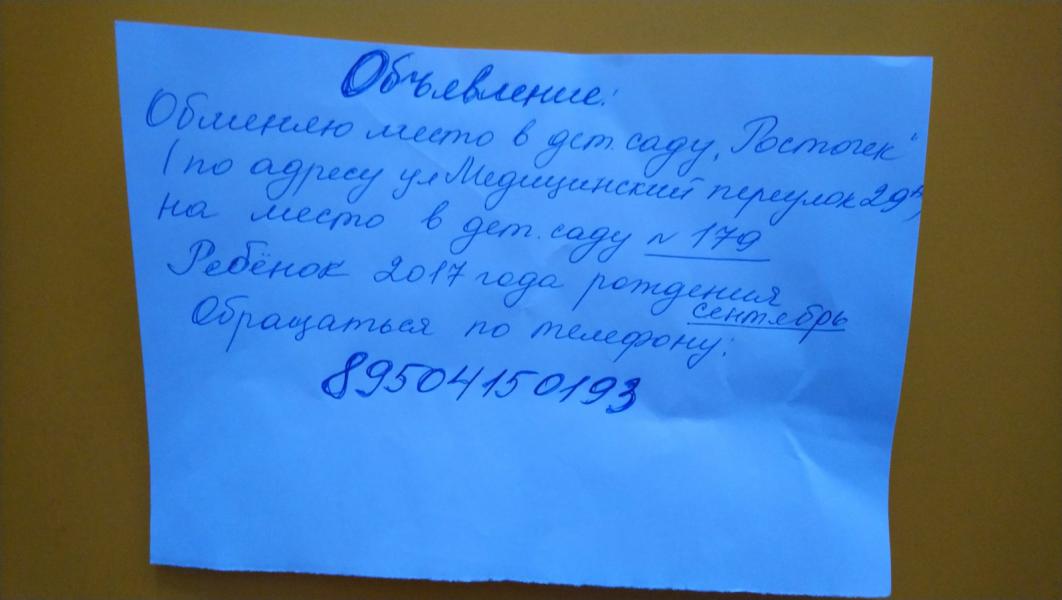 Объявление:
Обменяю место в дет. саду „Росточек"
(по адресу ул Медицинский переулок 29А)
на место в дет. саду № 179
Ребёнок 2017 года рождения
сентябрь
Обращаться по телефону:
89504150193